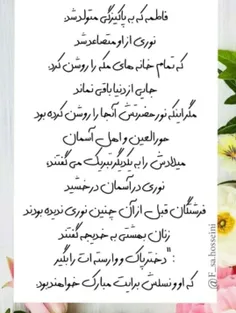 فاطمه که به پاکیزگی متولد شد
نوری از او متصاعد شد
که تمام خانه های مکه را روشن کرد.
جایی از دنیا باقی نماند
مگر اینکه نور حضرتش آنجا را روشن کرده بود
حورالعین و اهل آسمان
میلادش را به یکدیگر تبریک می گفتند
نوری در آسمان درخشید
فرشتگان قبل از آن چنین نوری ندیده بودند
زنان بهشتی به خدیجه گفتند
: "دختر پاک و وارسته ات را بگیر
که او و نسلش برایت مبارک خواهند بود.
@F_sa.hosseini